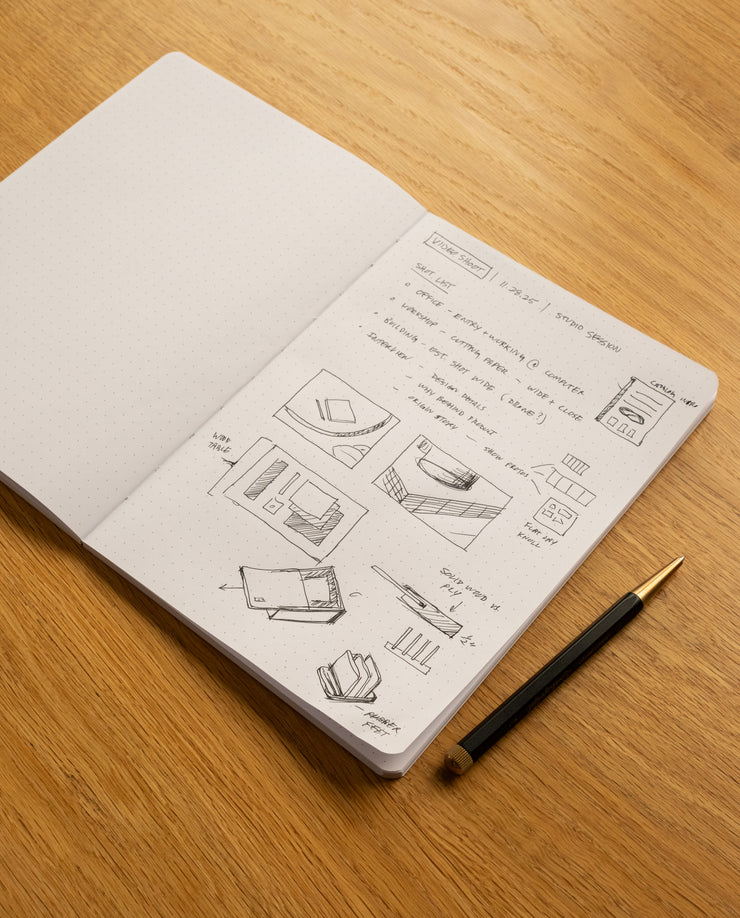 VIDEO SHOOT | 11.28.25 | STUDIO SESSION
SHOT LIST
OFFICE - ENTRY + WORKING @ COMPUTER
WORKSHOP - CUTTING PAPER - WIDE + CLOSE
BUILDING - EST. SHOT WIDE (DRONE?)
INTERVIEW - DESIGN DETAILS
- WHY BEHIND PRODUCT
- ORIGIN STORY - SHOW PROTOS
COMING
WIDE
TABLE
FLAT LAY
KNOLL
SOLID WOOD VS.
PLY
RUBBER
FEET